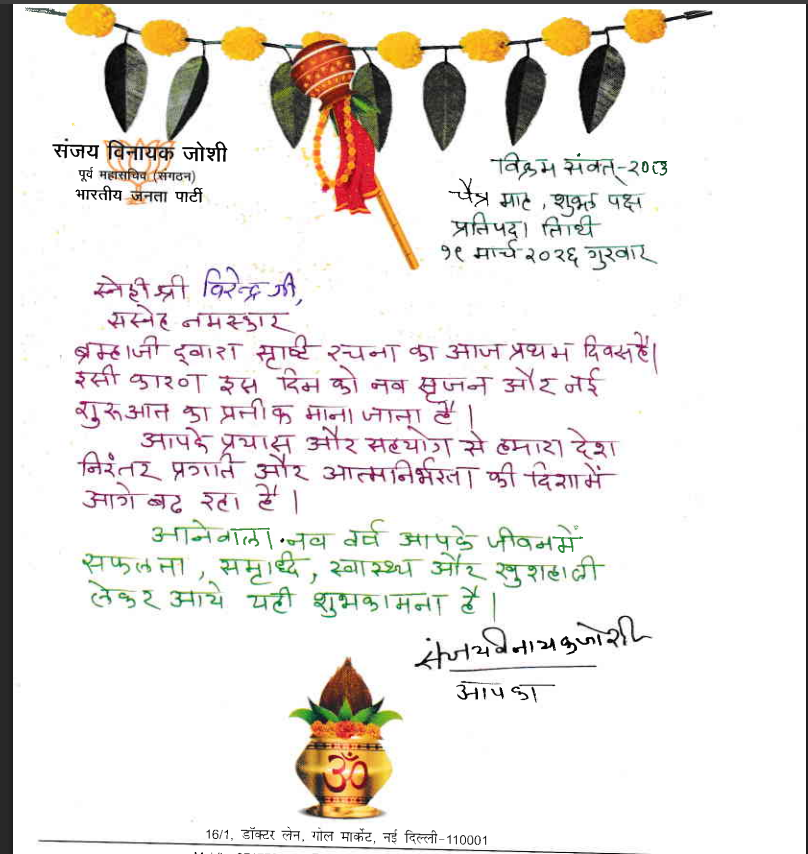 संजय विनायक जोशी
पूर्व महासचिव (संगठन)
भारतीय जनता पार्टी
विक्रम संवत्-२०८३
चैत्र माह, शुक्ल पक्ष
प्रतिपदा तिथी
१९ मार्च २०२६ गुरुवार
स्नेही श्री विरेन्द्र जी,
सस्नेह नमस्कार
ब्रम्हाजी द्वारा सृष्टि रचना का आज प्रथम दिवस है।
इसी कारण इस दिन को नव सृजन और नई
शुरुआत का प्रतीक माना जाता है।
आपके प्रयास और सहयोग से हमारा देश
निरंतर प्रगति और आत्मनिर्भरता की दिशा में
आगे बढ रहा है।
आनेवाला नव वर्ष आपके जीवन में
सफलता, समृद्धि, स्वास्थ्य और खुशहाली
लेकर आये यही शुभकामना है।
संजय विनायक जोशी
आपका
ॐ
16/1, डॉक्टर लेन, गोल मार्केट, नई दिल्ली-110001